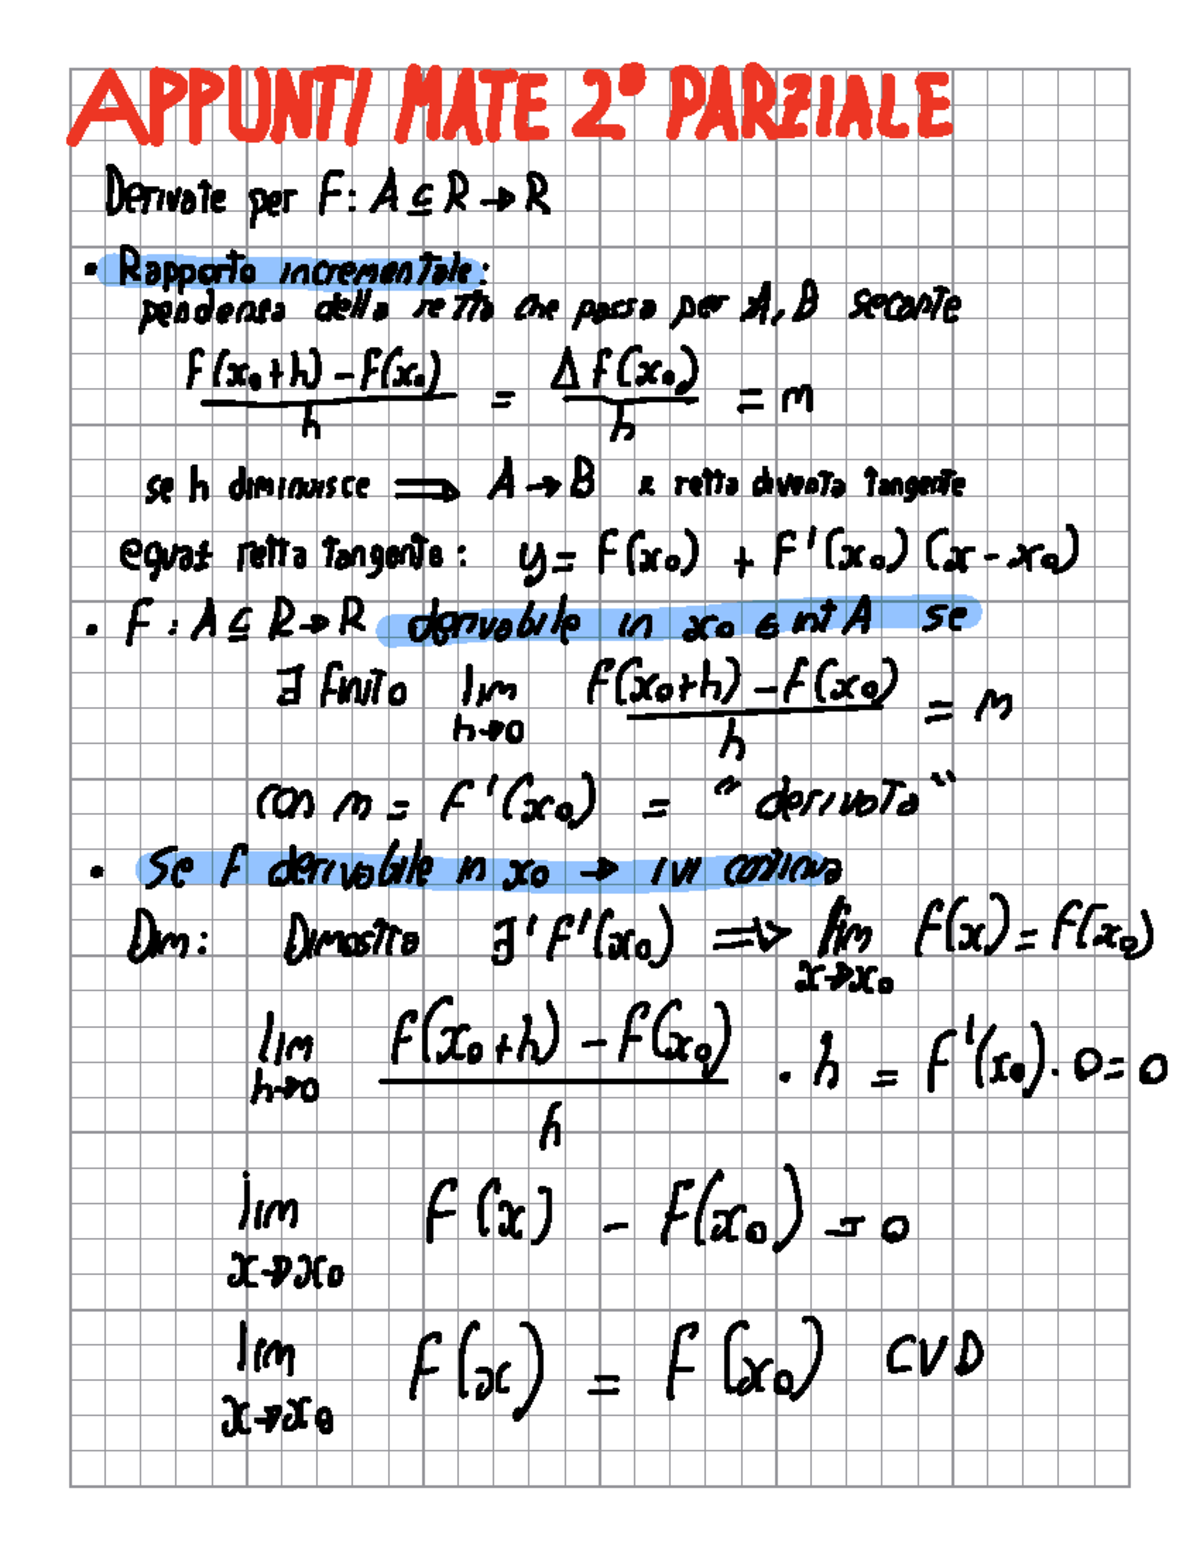 APPUNTI MATE 2° PARZIALE
Derivate per F: A ⊆ R → R
• Rapporto incrementale:
pendenza della retta che passa per A, B secante
F(x₀+h) - F(x₀) / h = Δf(x₀) / h = m
se h diminuisce ⟹ A → B e retta diventa tangente
equaz retta tangente: y = F(x₀) + F'(x₀) (x - x₀)
• F: A ⊆ R → R derivabile in x₀ ∈ int A se
∃ finito lim h→0 F(x₀+h) - F(x₀) / h = m
con m = F'(x₀) = "derivata"
• Se F derivabile in x₀ → ivi continua
Dim: Dimostro ∃' F'(x₀) ⟹ lim x→x₀ F(x) = F(x₀)
lim h→0 F(x₀+h) - F(x₀) / h · h = F'(x₀) · 0 = 0
lim x→x₀ F(x) - F(x₀) = 0
lim x→x₀ F(x) = F(x₀) CVD